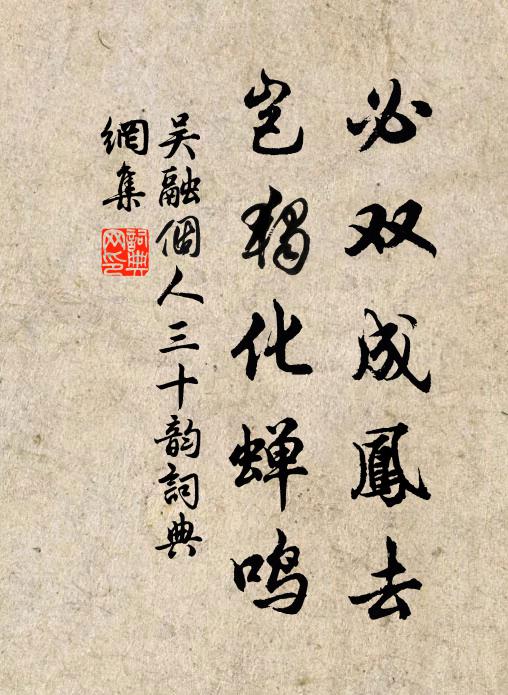 必双成鳳去
岂独化蝉鸣
吴融個人三十韵詞典
網集
詞典网印